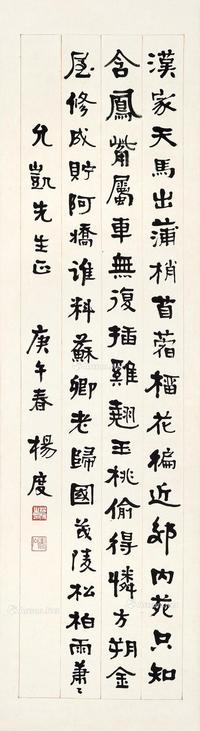 漢家天馬出蒲梢苜蓿榴花徧近郊內苑只知
含鳳嘴屬車無復插雞翹玉桃偷得憐方朔金
屋修成貯阿嬌誰料蘇卿老歸國茂陵松柏雨蕭〻
允凱先生正 庚午春 楊度